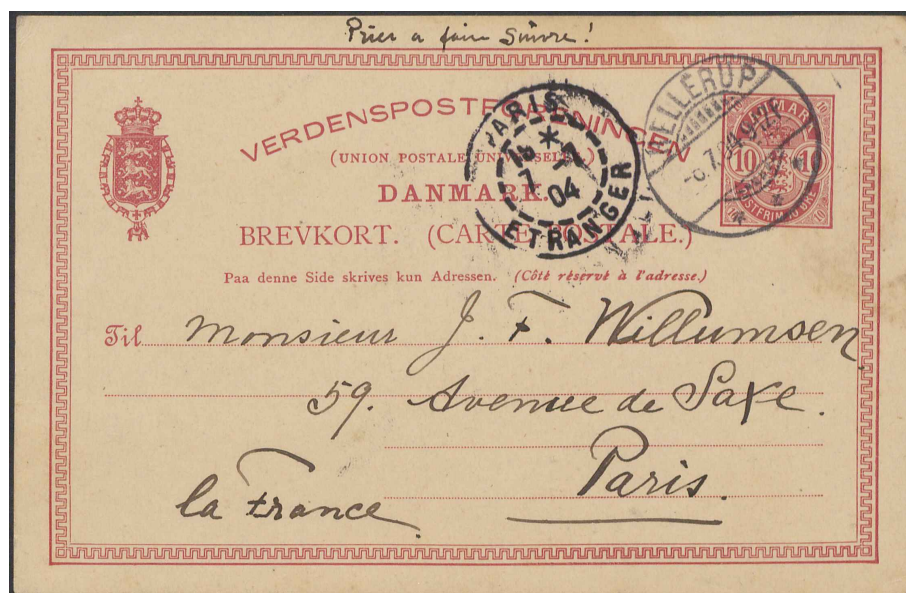 Prier a faire Suivre!
VERDENSPOSTFORENINGEN
(UNION POSTALE UNIVERSELLE.)
DANMARK.
BREVKORT. (CARTE POSTALE.)
Paa denne Side skrives kun Adressen. (Côté réservé à l'adresse.)
PARIS
7
04
ETRANGER
HELLERUP
10 10
Til Monsieur J. F. Willumsen
59. Avenue de Saxe.
Paris.
la France